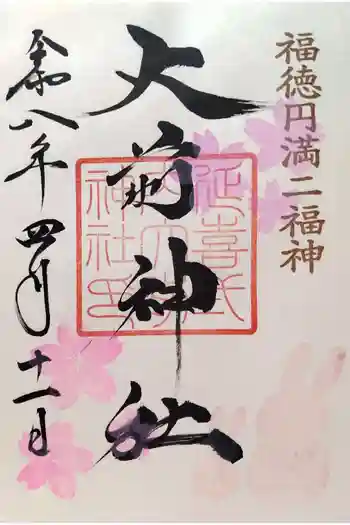 福徳円満二福神
大前神社
延喜式
内大前
神社印
令八年四月十一日